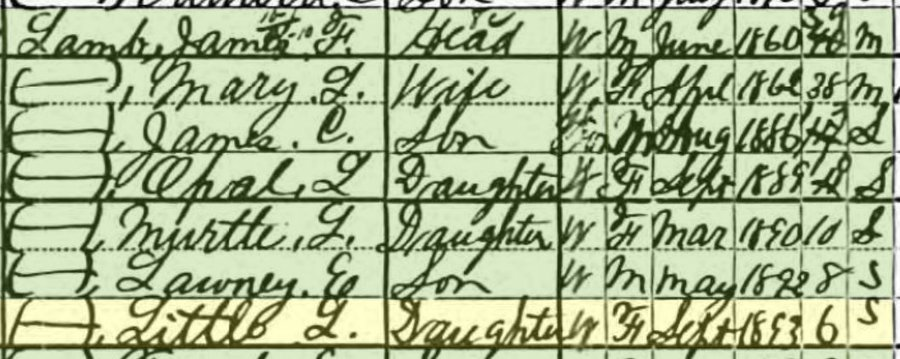 Lamb, James F. Head W M June 1860 M
, Mary. L. Wife W F Apl 1862 38 M
, James. C. Son M Aug 1886 S
, Opal, L Daughter W F Sept 1889 S
, Myrtle, L. Daughter W F Mar 1890 10 S
, Lawney. E Son W M May 1892 8 S
, Little L. Daughter W F Sept 1893 6 S